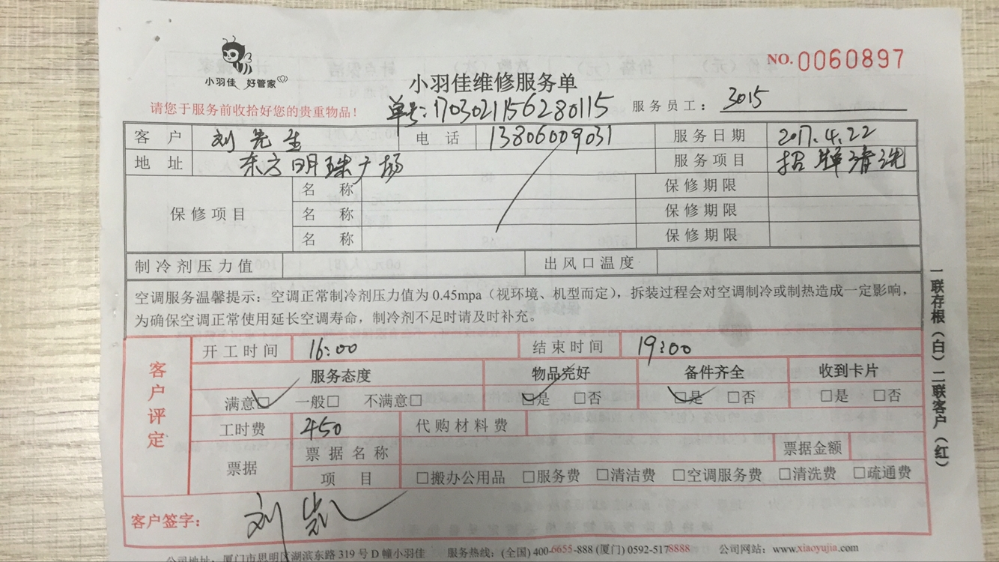 小羽佳 好管家
NO.0060897
小羽佳维修服务单
请您于服务前收拾好您的贵重物品!
单号:170302115628O115
服务员工: 3015
客户 刘先生 电话 13806009031 服务日期 2017.4.22
地址 东方明珠广场 服务项目 招牌清洗
保修项目
名称 保修期限
名称 保修期限
名称 保修期限
制冷剂压力值 出风口温度
空调服务温馨提示:空调正常制冷剂压力值为0.45mpa(视环境、机型而定),拆装过程会对空调制冷或制热造成一定影响,
为确保空调正常使用延长空调寿命,制冷剂不足时请及时补充。
客户评定
开工时间 16:00 结束时间 19:00
服务态度 物品完好 备件齐全 收到卡片
满意□ 一般□ 不满意□ □是 □否 □是 □否 □是 □否
工时费 450 代购材料费
票据 票据名称 票据金额
项目 □搬办公用品 □服务费 □清洁费 □空调服务费 □清洗费 □疏通费
客户签字: 刘凯
公司地址:厦门市思明区湖滨东路319号D幢小羽佳 服务热线:(全国)400-6655-888(厦门)0592-5178888 公司网站:www.xiaoyujia.com
一联存根(白)二联客户(红)